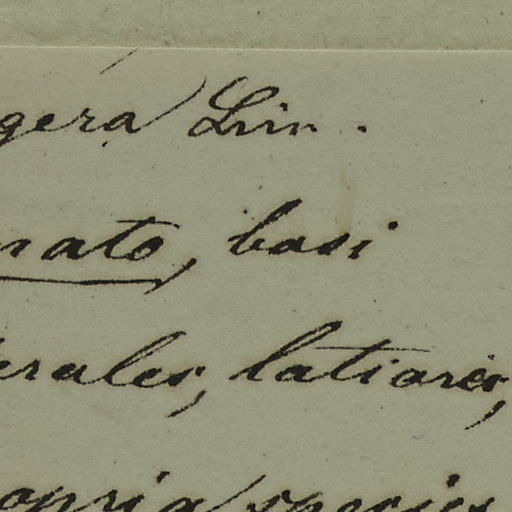 gera Lin.
nato, basi
erales, latiores,
opria species